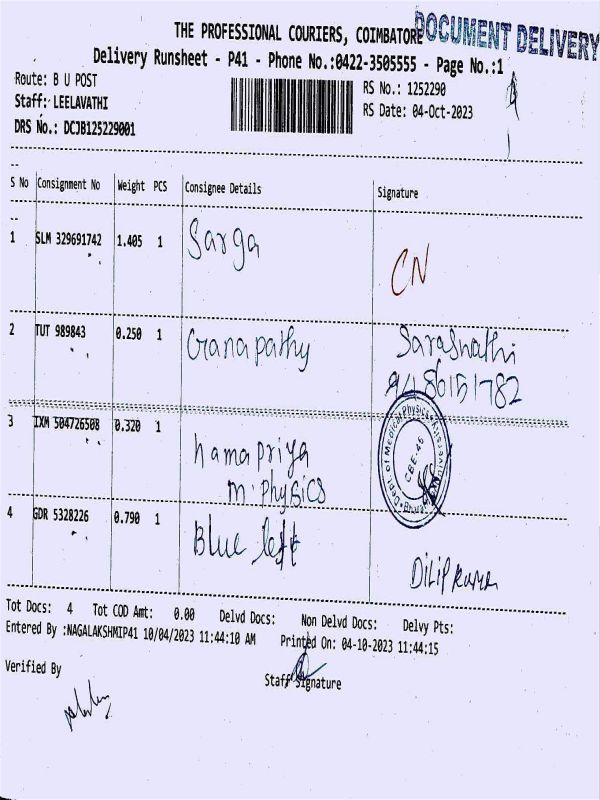 DOCUMENT DELIVERY
THE PROFESSIONAL COURIERS, COIMBATORE
Delivery Runsheet - P41 - Phone No.:0422-3505555 - Page No.:1
Route: B U POST
RS No.: 1252290
Staff: LEELAVATHI
RS Date: 04-Oct-2023
DRS No.: DCJB125229001
S No Consignment No Weight PCS Consignee Details Signature
1 SLM 329691742 1.405 1 Sarga CN
2 TUT 989843 0.250 1 Ganapathy
3 IXM 504726508 0.320 1 hamapriya
m. physics
Dept. of Medical Physics
CBE-46
4 GDR 5328226 0.790 1 Blue left Dilip kumar
Tot Docs: 4 Tot COD Amt: 0.00 Delvd Docs: Non Delvd Docs: Delvy Pts:
Entered By :NAGALAKSHMIP41 10/04/2023 11:44:10 AM Printed On: 04-10-2023 11:44:15
Verified By
Staff Signature